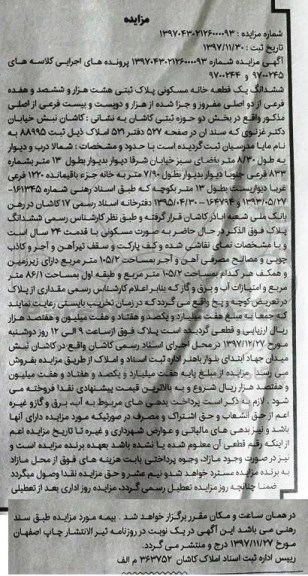 مزایده
شماره مزایده : ۱۳۹۷۰۴۳۰۲۱۲۶۰۰۰۰۹۳
تاریخ ثبت : ۱۳۹۷/۱۱/۳۰
آگهی مزایده شماره ۱۳۹۷۰۴۳۰۲۱۲۶۰۰۰۰۹۳ پرونده های اجرایی کلاسه های
۹۷۰۰۲۴۵ و ۹۷۰۰۲۴۴
ششدانگ یک قطعه خانه مسکونی پلاک ثبتی هشت هزار و ششصد و هفده
فرعی از دو اصلی مفروز و مجزا شده از هزار و دویست و بیست فرعی از اصلی
مذکور واقع در بخش دو حوزه ثبتی کاشان به نشانی : کاشان نبش خیابان
دکتر غزنوی که سند آن در صفحه ۵۲۷ دفتر ۵۳۱ املاک ذیل ثبت ۸۸۹۹۵ به
نام مایا مدرسیان ثبت گردیده است با حدود و مشخصات : شمالا درب و دیوار
به طول ۸/۳۰ متر بفضای سبز خیابان شرقا دیوار بدیوار بطول ۱۳ متر بشماره
۸۳۳ فرعی جنوبا دیوار بدیوار بطول ۷/۹۰ متر به خانه جزء باقیمانده ۱۲۲۰ فرعی
غربا دیواریست بطول ۱۳ متر بکوچه که طبق اسناد رهنی شماره ۱۶۱۳۴۵-
۱۳۹۳/۰۵/۲۷ و ۱۶۴۷۹۴-۱۳۹۵/۰۴/۳۰ دفترخانه اسناد رسمی ۱۷ کاشان در رهن
بانک ملی شعبه اباذر کاشان قرار گرفته و طبق نظر کارشناس رسمی ششدانگ
پلاک فوق الذکر در حال حاضر به صورت مسکونی با قدمت ۲۴ سال است
و با مشخصات نمای نقاشی شده و کف پارکت و سقف تیرآهن و آجر و کاذب
چوبی و مصالح مصرفی آهن و آجر بمساحت ۱۰۵/۲ متر مربع دارای زیرزمین
و همکف هر کدام بمساحت ۱۰۵/۲ متر مربع و طبقه اول بمساحت ۸۶/۱ متر
مربع و امتیازات آب و برق و گاز که بنابر اعلام کارشناس رسمی مقداری از پلاک
در تعریض کوچه و پخ واقع می گردد که در زمان تخریب بایستی رعایت نمایند
که جمعا به مبلغ هفت میلیارد و یکصد و هفتاد و هفت میلیون و هفتصد هزار
ریال ارزیابی و قطعی گردیده است پلاک فوق از ساعت ۹ الی ۱۲ روز دوشنبه
مورخ ۱۳۹۷/۱۲/۲۷ در محل اجرای اسناد رسمی کاشان واقع در کاشان نبش
میدان جهاد ابتدای بلوار باهنر اداره ثبت اسناد و املاک از طریق مزایده بفروش
می رسد. مزایده از مبلغ پایه هفت میلیارد و یکصد و هفتاد و هفت میلیون
و هفتصد هزار ریال شروع و به بالاترین قیمت پیشنهادی نقدا فروخته می
شود . لازم به ذکر است پرداخت بدهی های مربوط به آب، برق و گاز و غیره
اعم از حق انشعاب و حق اشتراک و مصرف در صورتیکه مورد مزایده دارای آنها
باشد و نیز بدهی های مالیاتی و عوارض شهرداری و غیره تا تاریخ مزایده اعم
از اینکه رقم قطعی آن معلوم شده یا نشده باشد بعهده برنده مزایده است و
نیز در صورت وجود مازاد، وجوه پرداختی بابت هزینه های فوق از محل مازاد
به برنده مزایده مسترد خواهد شد و نیم عشر و حق مزایده نقدا وصول میگردد
ضمنا چنانچه روز مزایده تعطیل رسمی گردد، مزایده روز اداری بعد از تعطیلی
در همان ساعت و مکان مقرر برگزار خواهد شد . بیمه مورد مزایده طبق سند
رهنی می باشد این آگهی در یک نوبت در روزنامه تیر الانتشار چاپ اصفهان
مورخ ۱۳۹۷/۱۱/۲۷ درج و منتشر می گردد.
رییس اداره ثبت اسناد املاک کاشان ۳۶۳۷۵۲ م الف